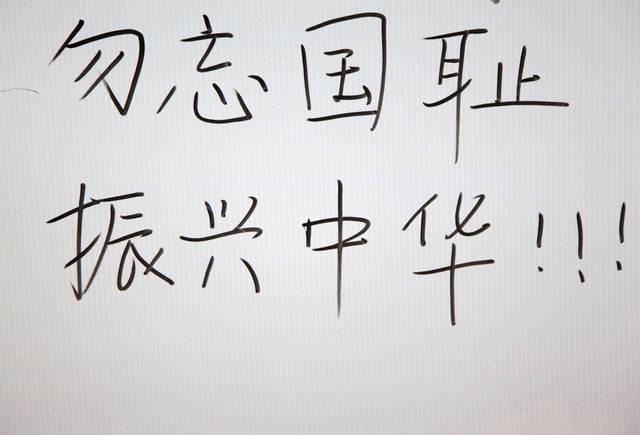 勿忘国耻
振兴中华!!!